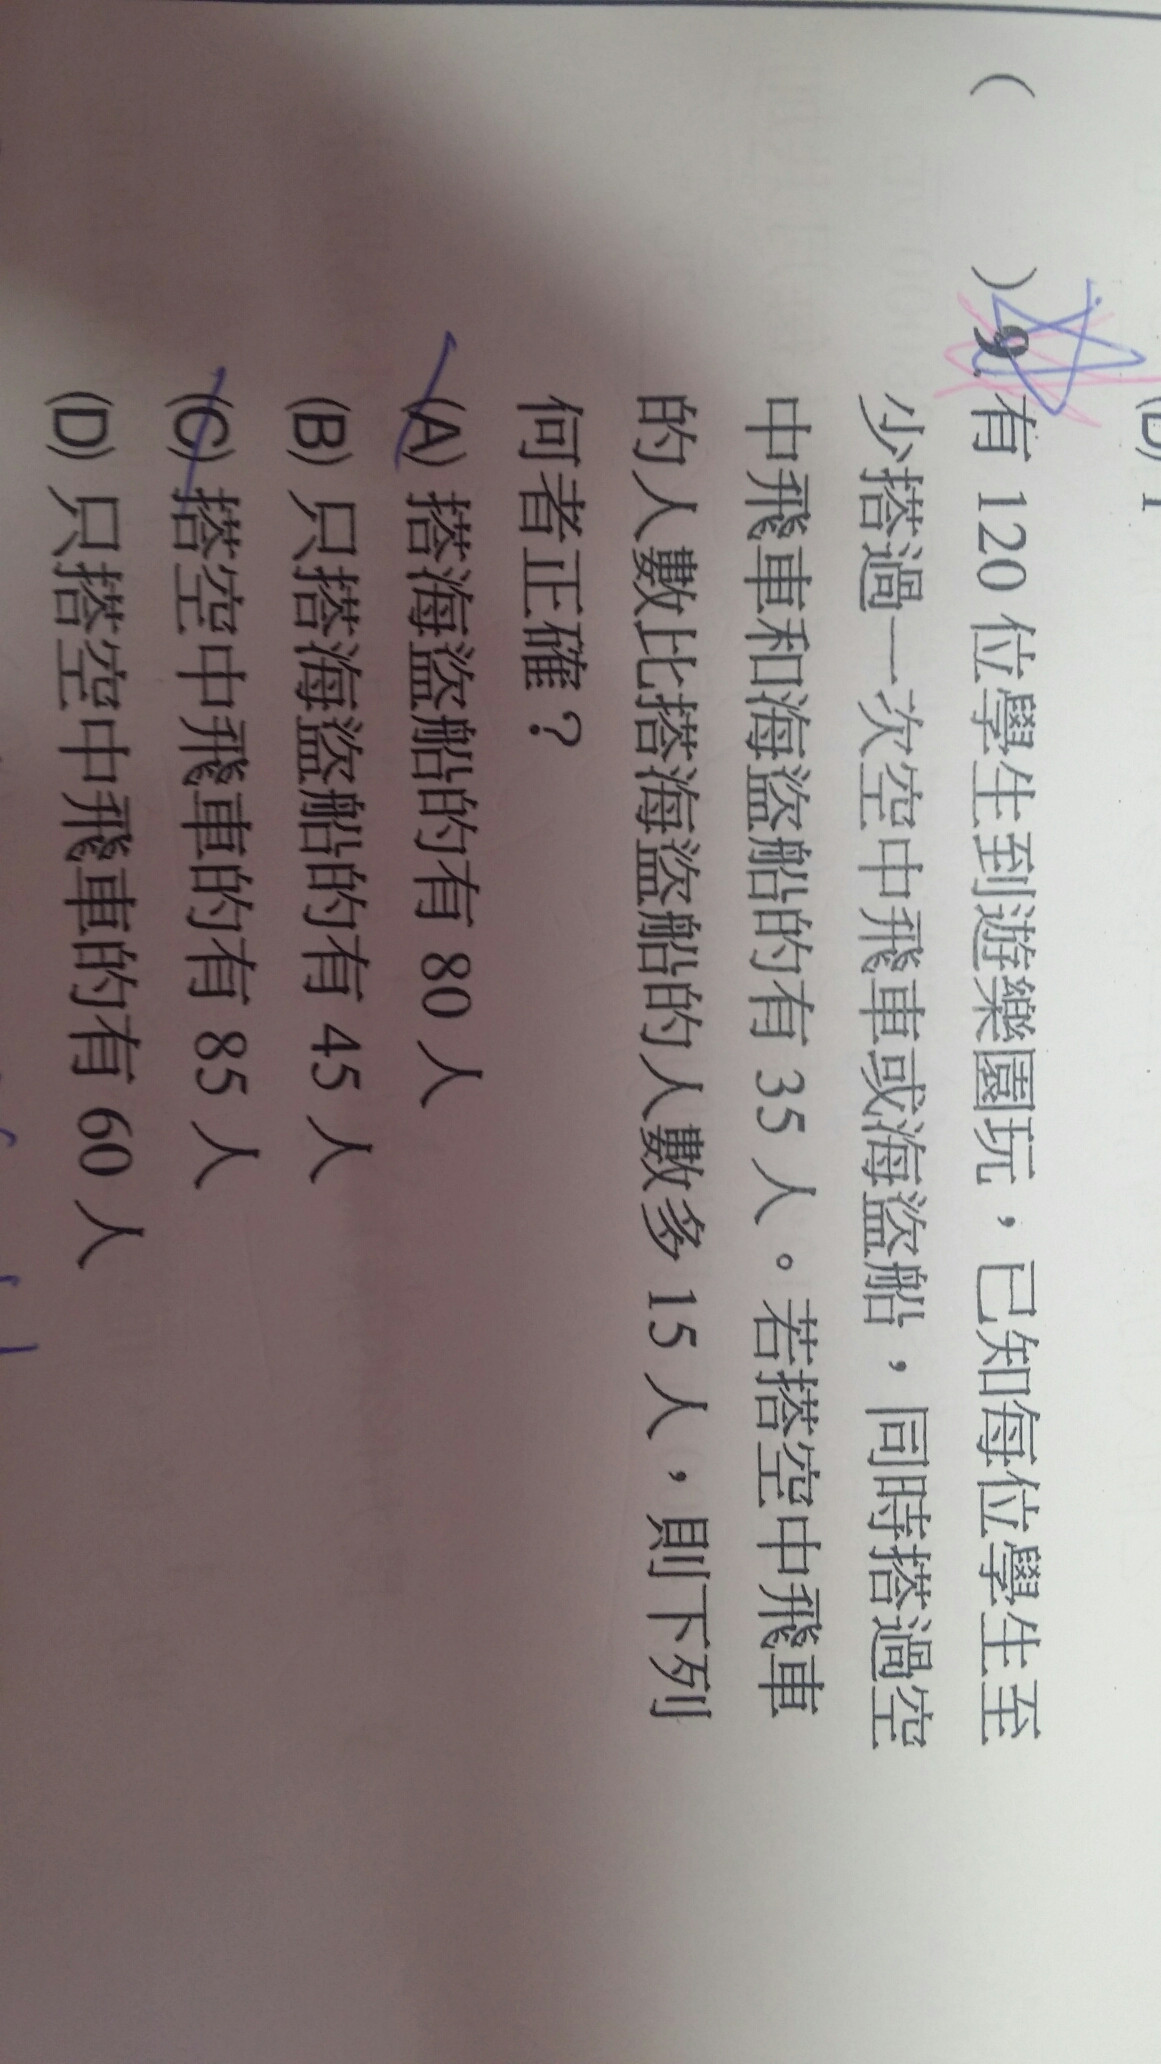 (　　)9. 有 120 位學生到遊樂園玩，已知每位學生至
少搭過一次空中飛車或海盜船，同時搭過空
中飛車和海盜船的有 35 人。若搭空中飛車
的人數比搭海盜船的人數多 15 人，則下列
何者正確？
(A) 搭海盜船的有 80 人
(B) 只搭海盜船的有 45 人
(C) 搭空中飛車的有 85 人
(D) 只搭空中飛車的有 60 人